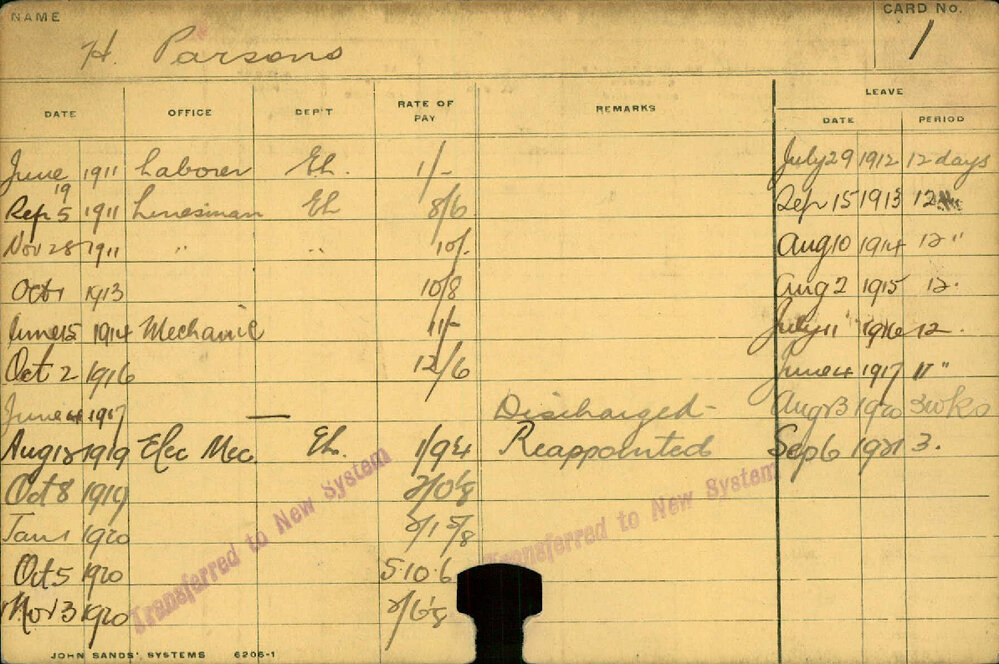 NAME
CARD No.
H. Parsons
1
DATE OFFICE DEP'T RATE OF PAY REMARKS LEAVE
DATE PERIOD
June 19 1911 Laborer EL. 1/- July 29 1912 12 days
Sep 5 1911 Linesman EL 8/6 Sep 15 1913 12
Nov 28 1911 " " 10/- Aug 10 1914 12 "
Oct 1 1913 10/8 Aug 2 1915 12.
June 15 1914 Mechanic 11/- July 11 1916 12.
Oct 2 1916 12/6 June 4 1917 11 "
June 4 1917 — Discharged - Aug 23 1920 3 wks
Aug 18 1919 Elec Mec. EL. Reappointed Sep 6 1921 3.
Oct 8 1919
Jan 1 1920
Oct 5 1920 5.10.6
Nov 3 1920
Transferred to New System
Transferred to New System
JOHN SANDS' SYSTEMS 6206-1